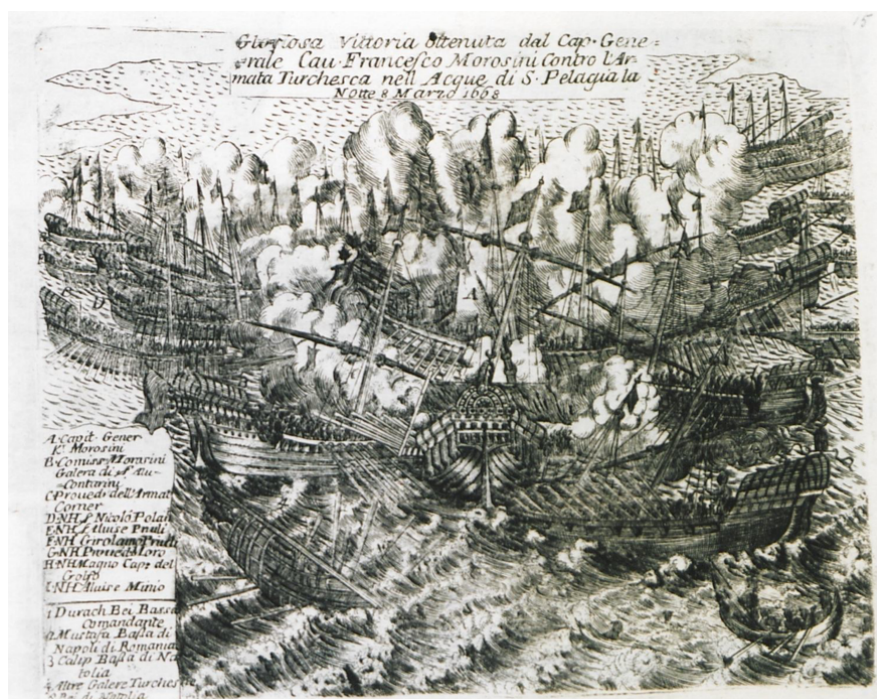 15
Gloriosa Vittoria ottenuta dal Cap. Gene=
rale Cau. Francesco Morosini Contro l'Ar
mata Turchesca nell Acque di S. Pelagia la
Notte 8 Marzo 1668
A. Capit. Gener
K.r Morosini
B. Comiss. Morasini
Galera di
Contarini
C. Proued.r dell'Armat
Corner
D. NH. S. Nicolò Polani
E. NH. S. Aluise Priuli
F. NH. Girolamo Priuli
G. NH. Moro
H. NH. Magno Cap.o del
Golfo
I. NH. Aluise Minio
1 Durach Bei Bassa
Comandante
2. Mustafa Bassa di
Napoli di Romania
3 Calip Bassa di Na
tolia
4 Altre Galere Turchesche
A